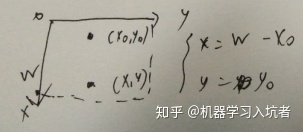 O y
(X₀, y₀)
W
(X, Y)
X
x = W - X₀
y = y₀
知乎 @机器学习入坑者